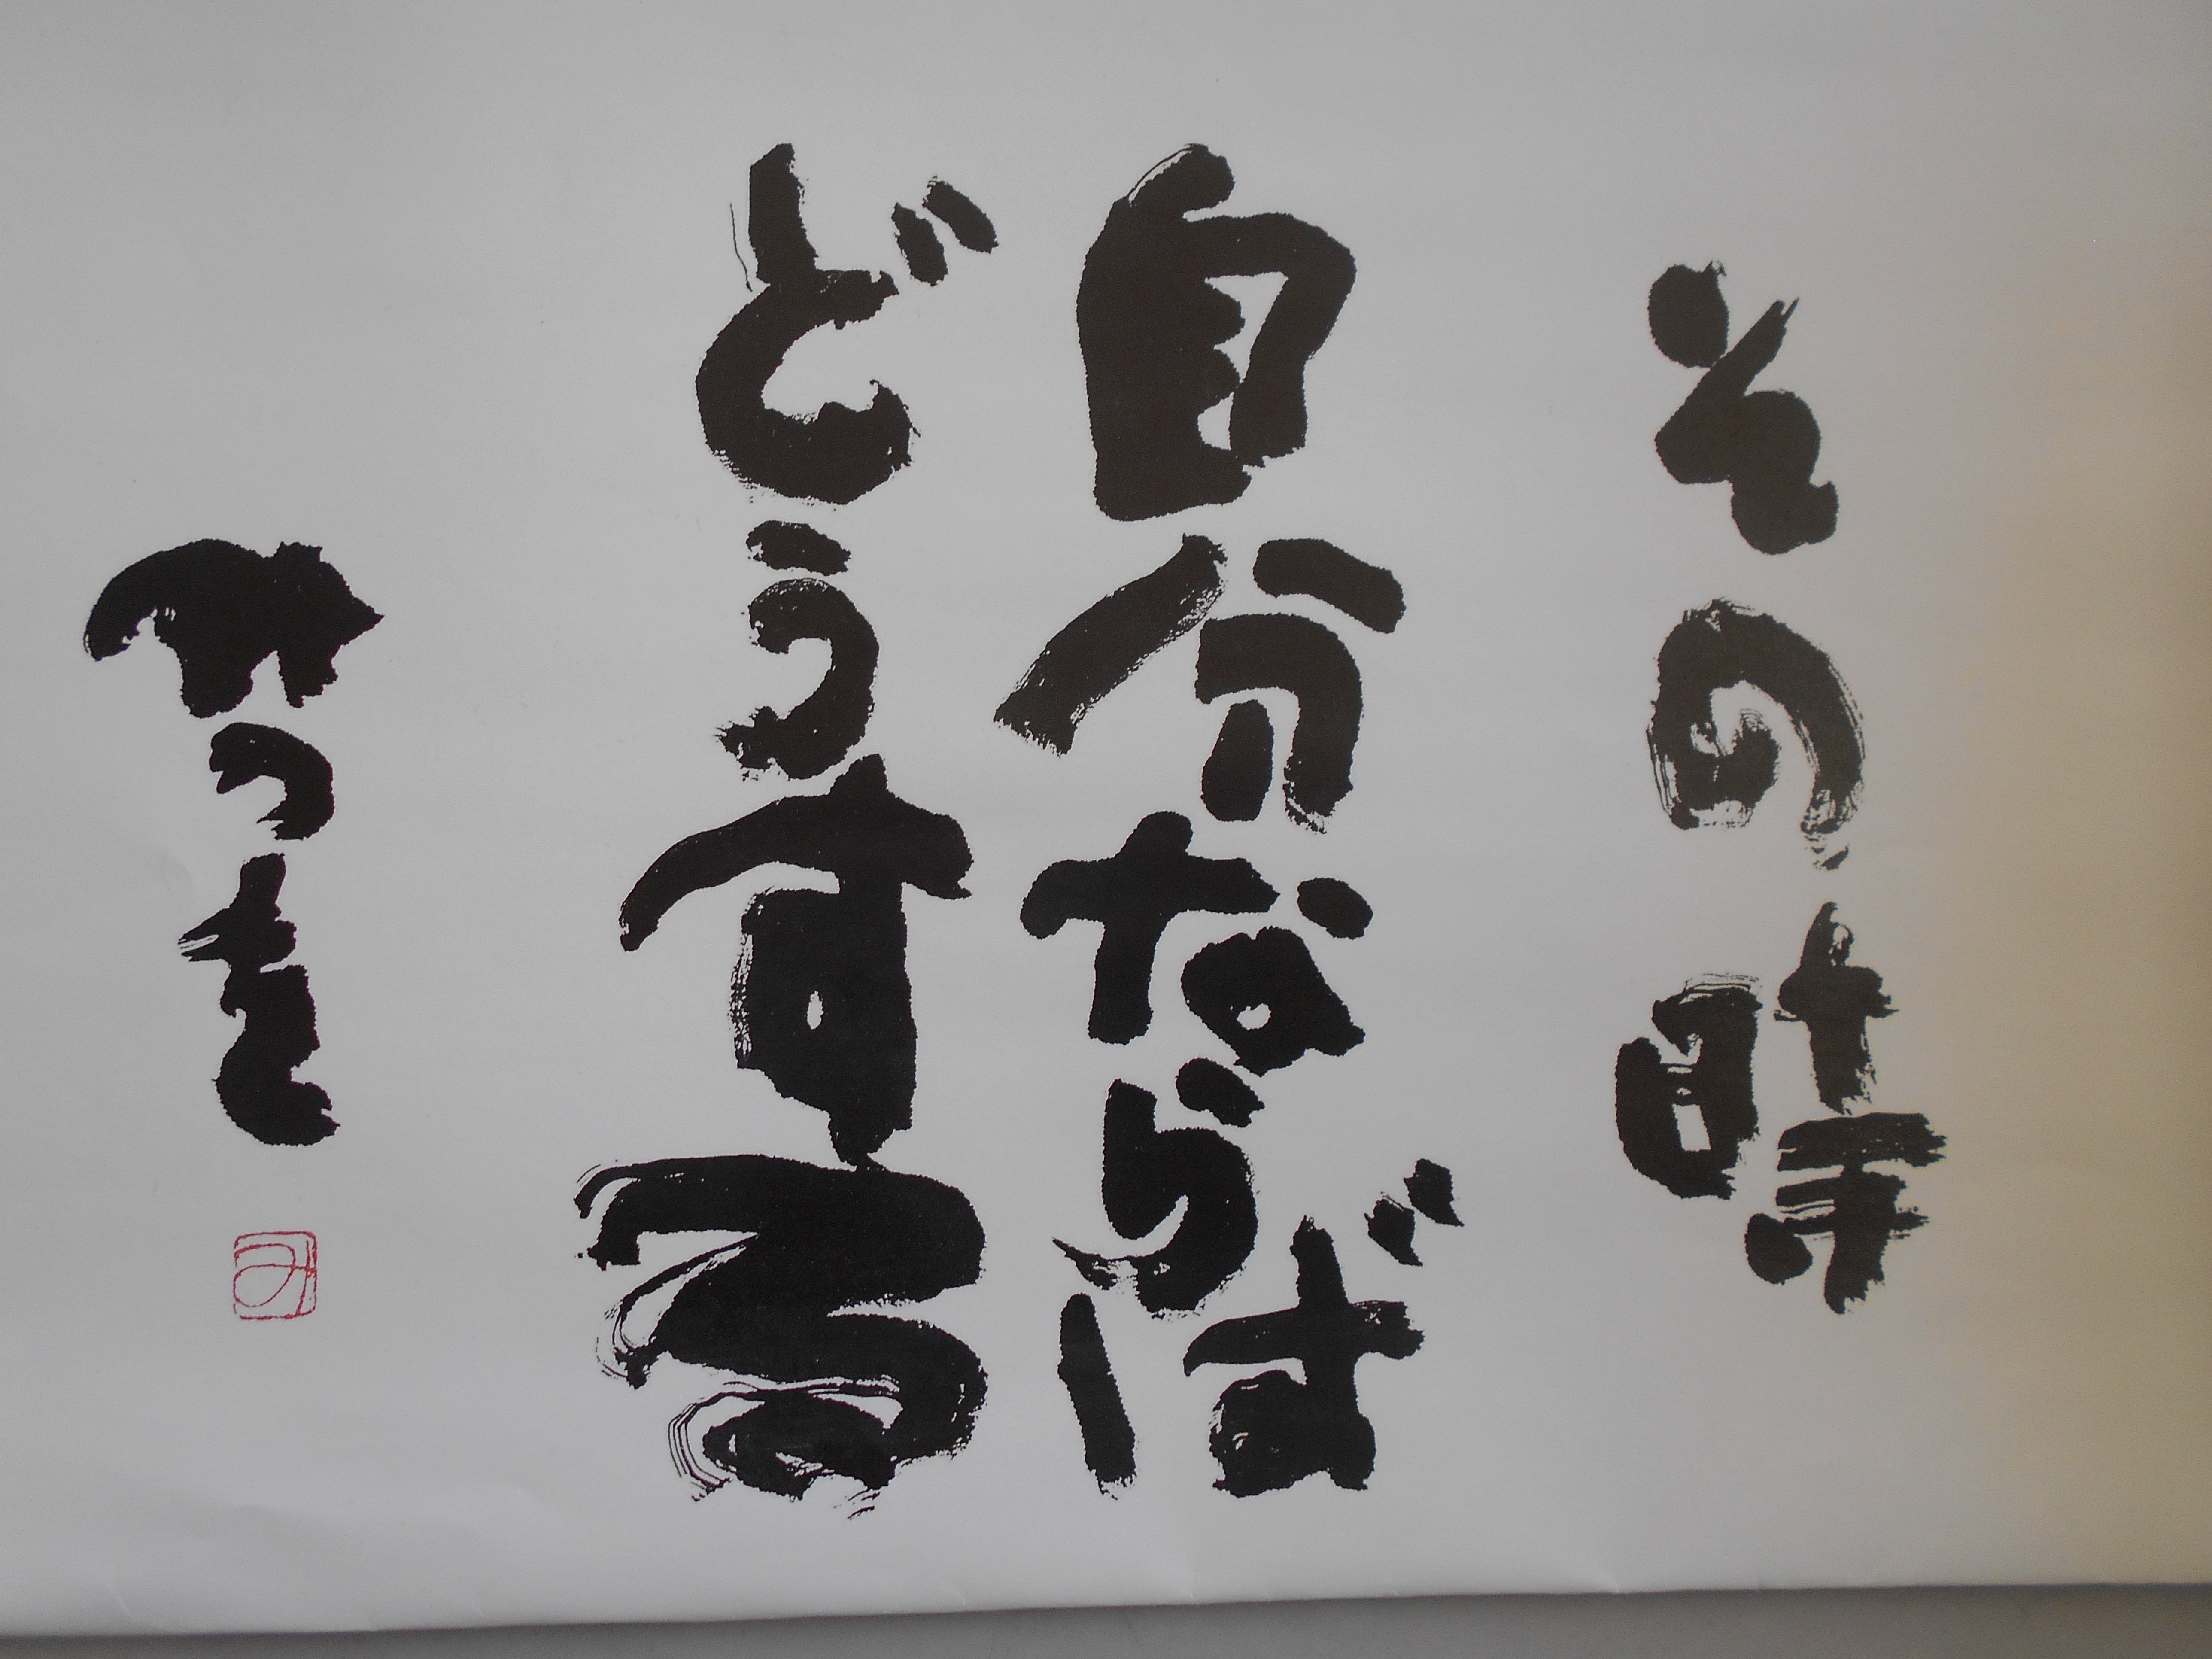 その時
自分ならば
どうする
みつを